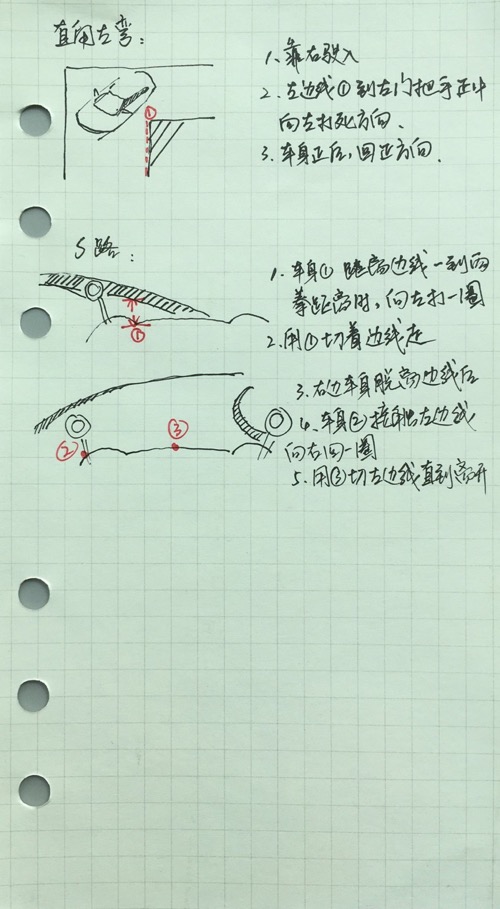 直角左弯：
1. 靠右驶入
2. 左边线①到左门把手正中
向左打死方向.
3. 车身正后，回正方向.
①
S路：
1. 车身① 距离边线一到两
拳距离时，向左打一圈
2. 用①切着边线走
①
3. 右边车身脱离边线后
4. 车身②接触左边线
向右回一圈
5. 用③切左边线直到离开
②
③